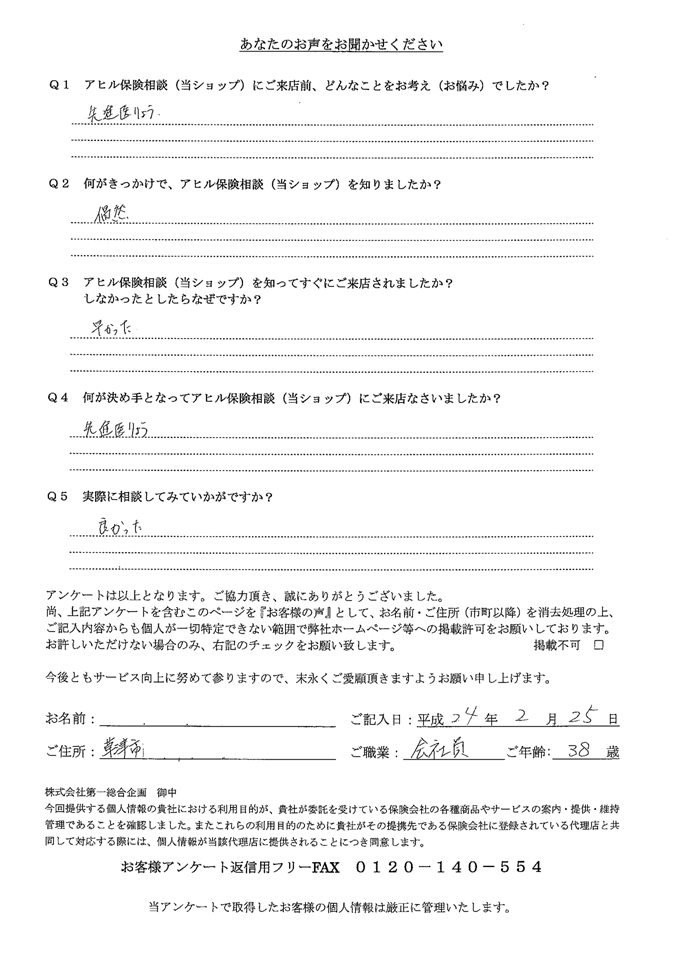 あなたのお声をお聞かせください
Q1 アヒル保険相談（当ショップ）にご来店前、どんなことをお考え（お悩み）でしたか？
先進医りょう.
Q2 何がきっかけで、アヒル保険相談（当ショップ）を知りましたか？
偶然.
Q3 アヒル保険相談（当ショップ）を知ってすぐにご来店されましたか？
しなかったとしたらなぜですか？
早かった.
Q4 何が決め手となってアヒル保険相談（当ショップ）にご来店なさいましたか？
先進医りょう
Q5 実際に相談してみていかがですか？
良かった
アンケートは以上となります。ご協力頂き、誠にありがとうございました。
尚、上記アンケートを含むこのページを『お客様の声』として、お名前・ご住所（市町以降）を消去処理の上、
ご記入内容からも個人が一切特定できない範囲で弊社ホームページ等への掲載許可をお願いしております。
お許しいただけない場合のみ、右記のチェックをお願い致します。 掲載不可 □
今後ともサービス向上に努めて参りますので、末永くご愛顧頂きますようお願い申し上げます。
お名前： ご記入日：平成 24 年 2 月 25 日
ご住所： 草津市 ご職業： 会社員 ご年齢： 38 歳
株式会社第一総合企画 御中
今回提供する個人情報の貴社における利用目的が、貴社が委託を受けている保険会社の各種商品やサービスの案内・提供・維持
管理であることを確認しました。またこれらの利用目的のために貴社がその提携先である保険会社に登録されている代理店と共
同して対応する際には、個人情報が当該代理店に提供されることにつき同意します。
お客様アンケート返信用フリーFAX 0120－140－554
当アンケートで取得したお客様の個人情報は厳正に管理いたします。